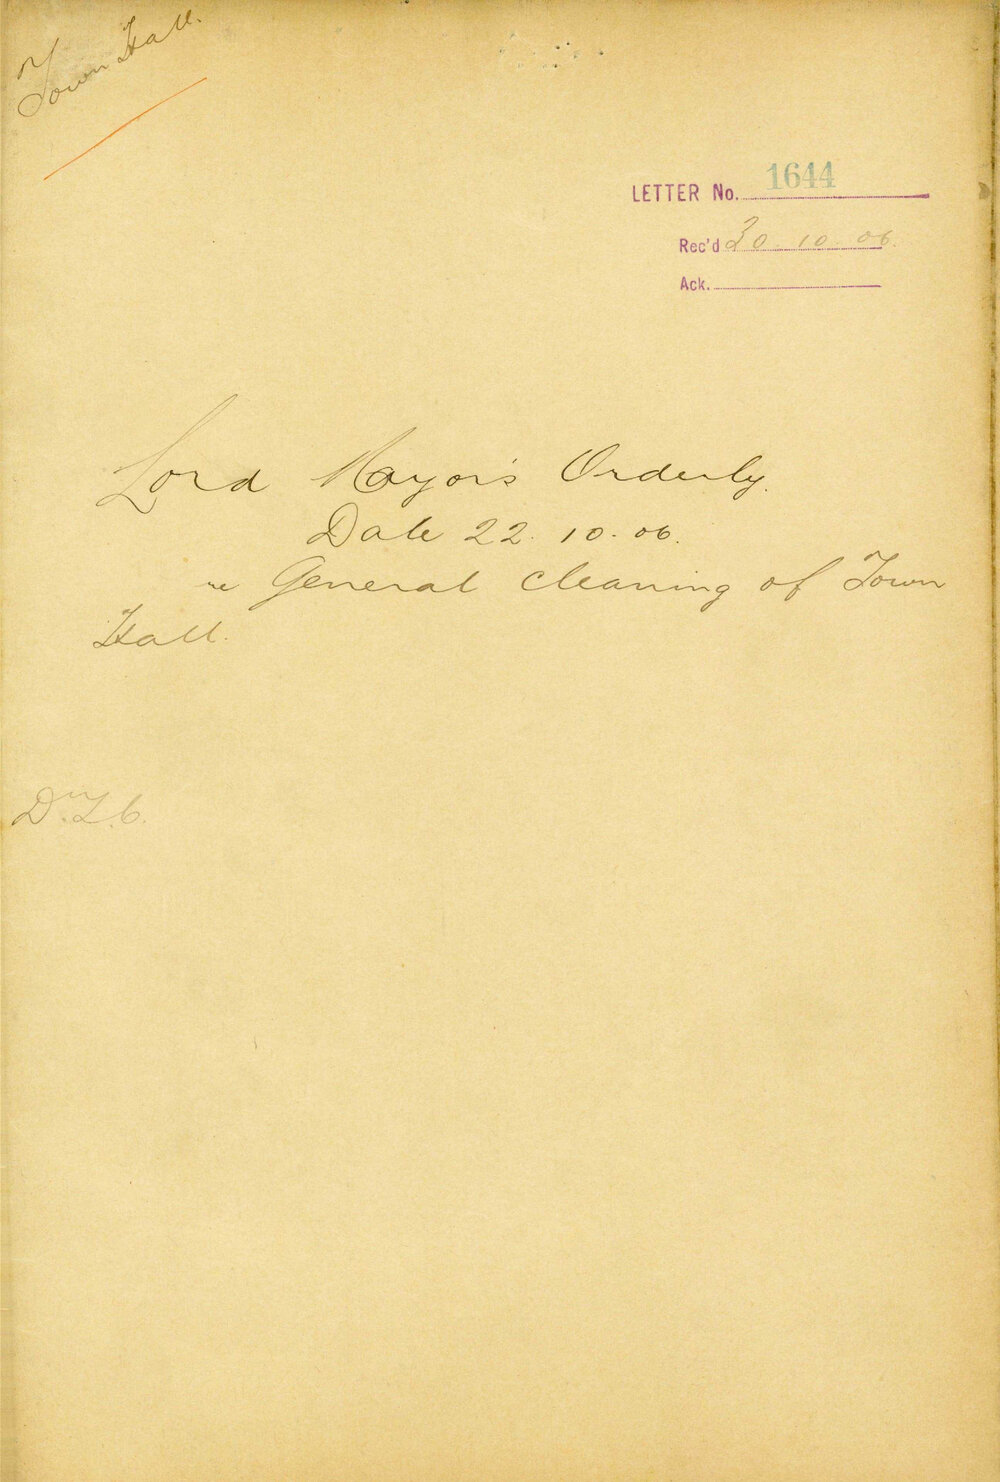 Town Hall.
LETTER No. 1644
Rec'd 30 10 06.
Ack.
Lord Mayor's Orderly.
Date 22. 10. 06.
re General cleaning of Town
Hall.